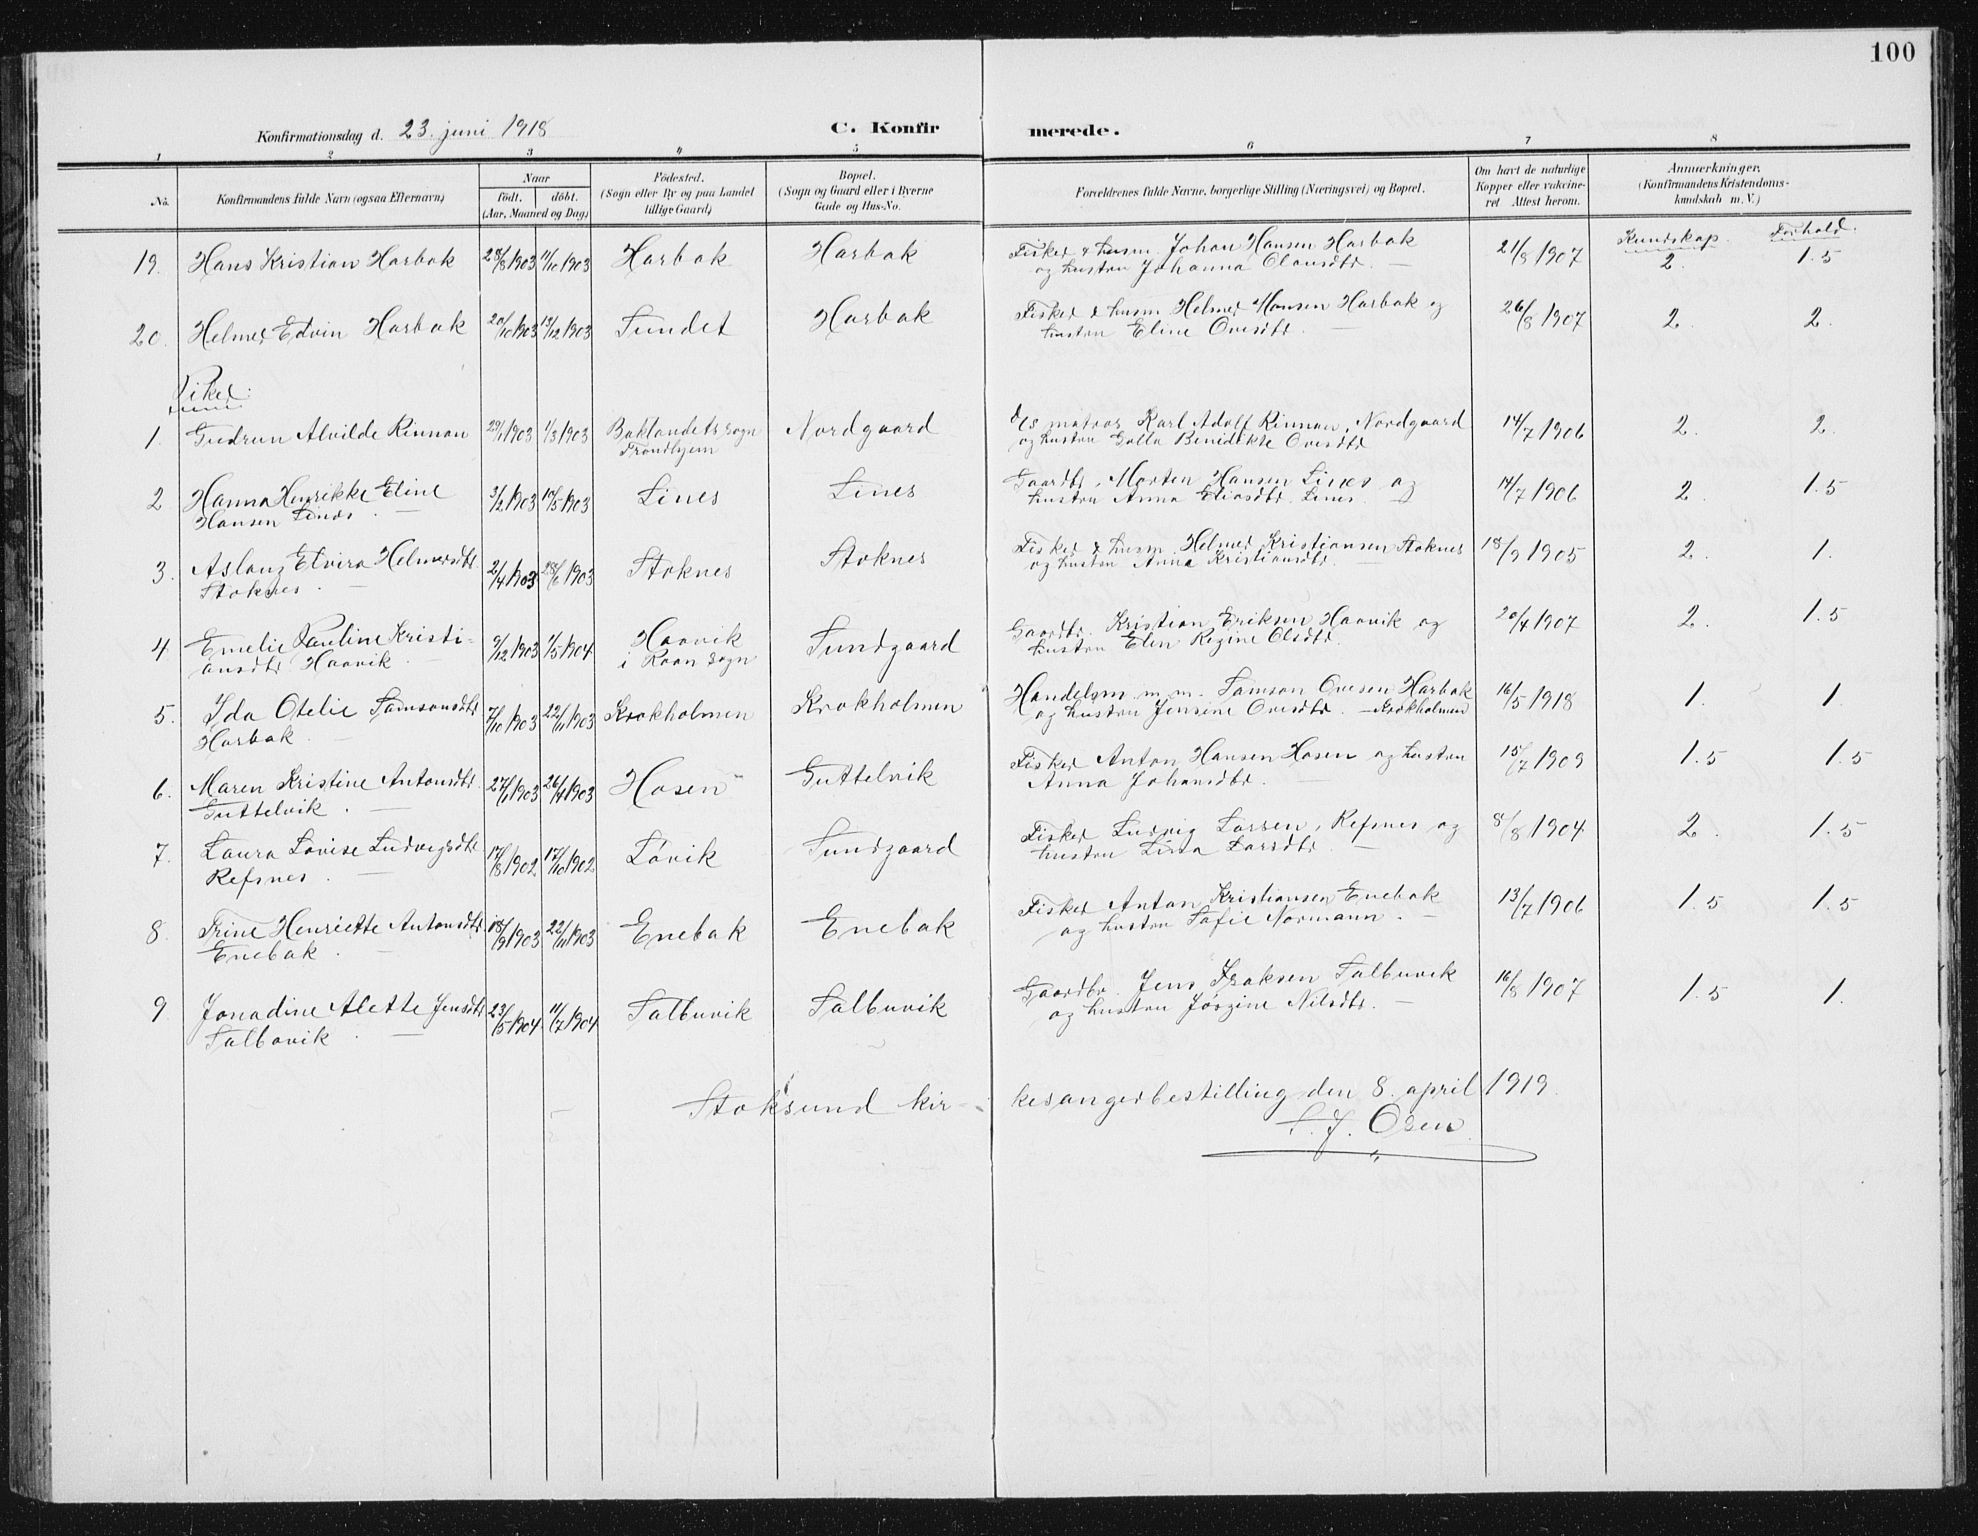 100
Konfirmationsdag d. 23. juni 1918 C. Konfirmerede.
1 2 3 4 5 6 7 8
No. Konfirmandens fulde Navn (ogsaa Efternavn) Naar født. døbt. (Aar, Maaned og Dag) Fødested. (Sogn eller By og paa Landet tillige Gaard) Bopæl. (Sogn og Gaard eller i Byerne Gade og Hus-No. Forældrenes fulde Navne, borgerlige Stilling (Næringsvei) og Bopæl. Om havt de naturlige Kopper eller vakcineret Attest herom. Anmærkninger. (Konfirmandens Kristendomskundskab m. V.)
Kundskap. Forhold.
19. Hans Kristian Harbak 28/8 1903 11/10 1903 Harbak Harbak Fisker & husm. Johan Hansen Harbak 21/8 1907 2. 1.5
og hustru Johanna Olausdtr. —
20. Helmer Edvin Harbak 20/10 1903 13/12 1903 Sundet Harbak Fisker & husm Helmer Hansen Harbak og 26/8 1907 2. 2.
hustru Eline Ovesdtr. —
Piker:
1. Gudrun Alvilde Rinnan 29/1 1903 1/3 1903 Baklandets sogn Nordgaard d/s matros Karl Adolf Rinnan, Nordgaard 14/7 1906 2. 2.
Trondhjem og hustru Golla Benidikte Ovesdtr
2 Hanna Henrikke Eline 3/2 1903 10/5 1903 Lines Lines Gaardbr. Morten Hansen Lines og 14/7 1906 2. 1.5
Hansen Lines. — hustru Anna Eliasdtr. Lines. —
3. Aslaug Elvira Helmersdtr 2/4 1903 28/6 1903 Stoknes Stoknes Fisker & husm. Helmer Kristiansen Stoknes 18/9 1905 2. 1.
Stoknes. — og hustru Anna Kristiansdtr. —
4. Emelie Pauline Kristi- 9/12 1903 1/5 1904 Haavik Sundgaard Gaardbr. Kristian Eriksen Haavik og 20/4 1907 2. 1.5
ansdtr Haavik. — i Roan sogn hustru Elen Regine Olsdtr.
5. Ida Otelie Samsonsdtr 7/10 1903 22/11 1903 Krokholmen Krokholmen Handelsm. m.m. Samson Ovesen Harbak 16/5 1918 1. 1.
Harbak. — og hustru Jensine Ovesdtr. — Krokholmen
6. Maren Kristine Antonsdtr 27/1 1903 26/4 1903 Hosen Guttelvik Fisker Anton Hansen Hosen og hustru 15/7 1909 1.5 1.5
Guttelvik. — Anna Johansdtr.
7. Laura Lovise Ludvigsdtr 17/8 1902 17/10 1902 Løvik Sundgaard Fisker Ludvig Larsen, Refsnes og 8/8 1904 2. 1.5
Refsnes. — hustru Lina Larsdtr. —
8. Trine Henriette Antonsdtr 18/9 1903 22/11 1903 Enebak Enebak Fisker Anton Kristiansen Enebak 13/7 1906 1.5 1.5
Enebak. — og hustru Sofie Normann. —
9. Jonadine Alette Jensdtr 23/5 1904 11/7 1904 Salbuvik Salbuvik Gaardbr. Jens Isaksen Salbuvik 16/8 1907 1.5 1.
Salbuvik. — og hustru Jørgine Nilsdtr. —
Stoksund kirkesangerbestilling den 8. april 1919.
J. Osen